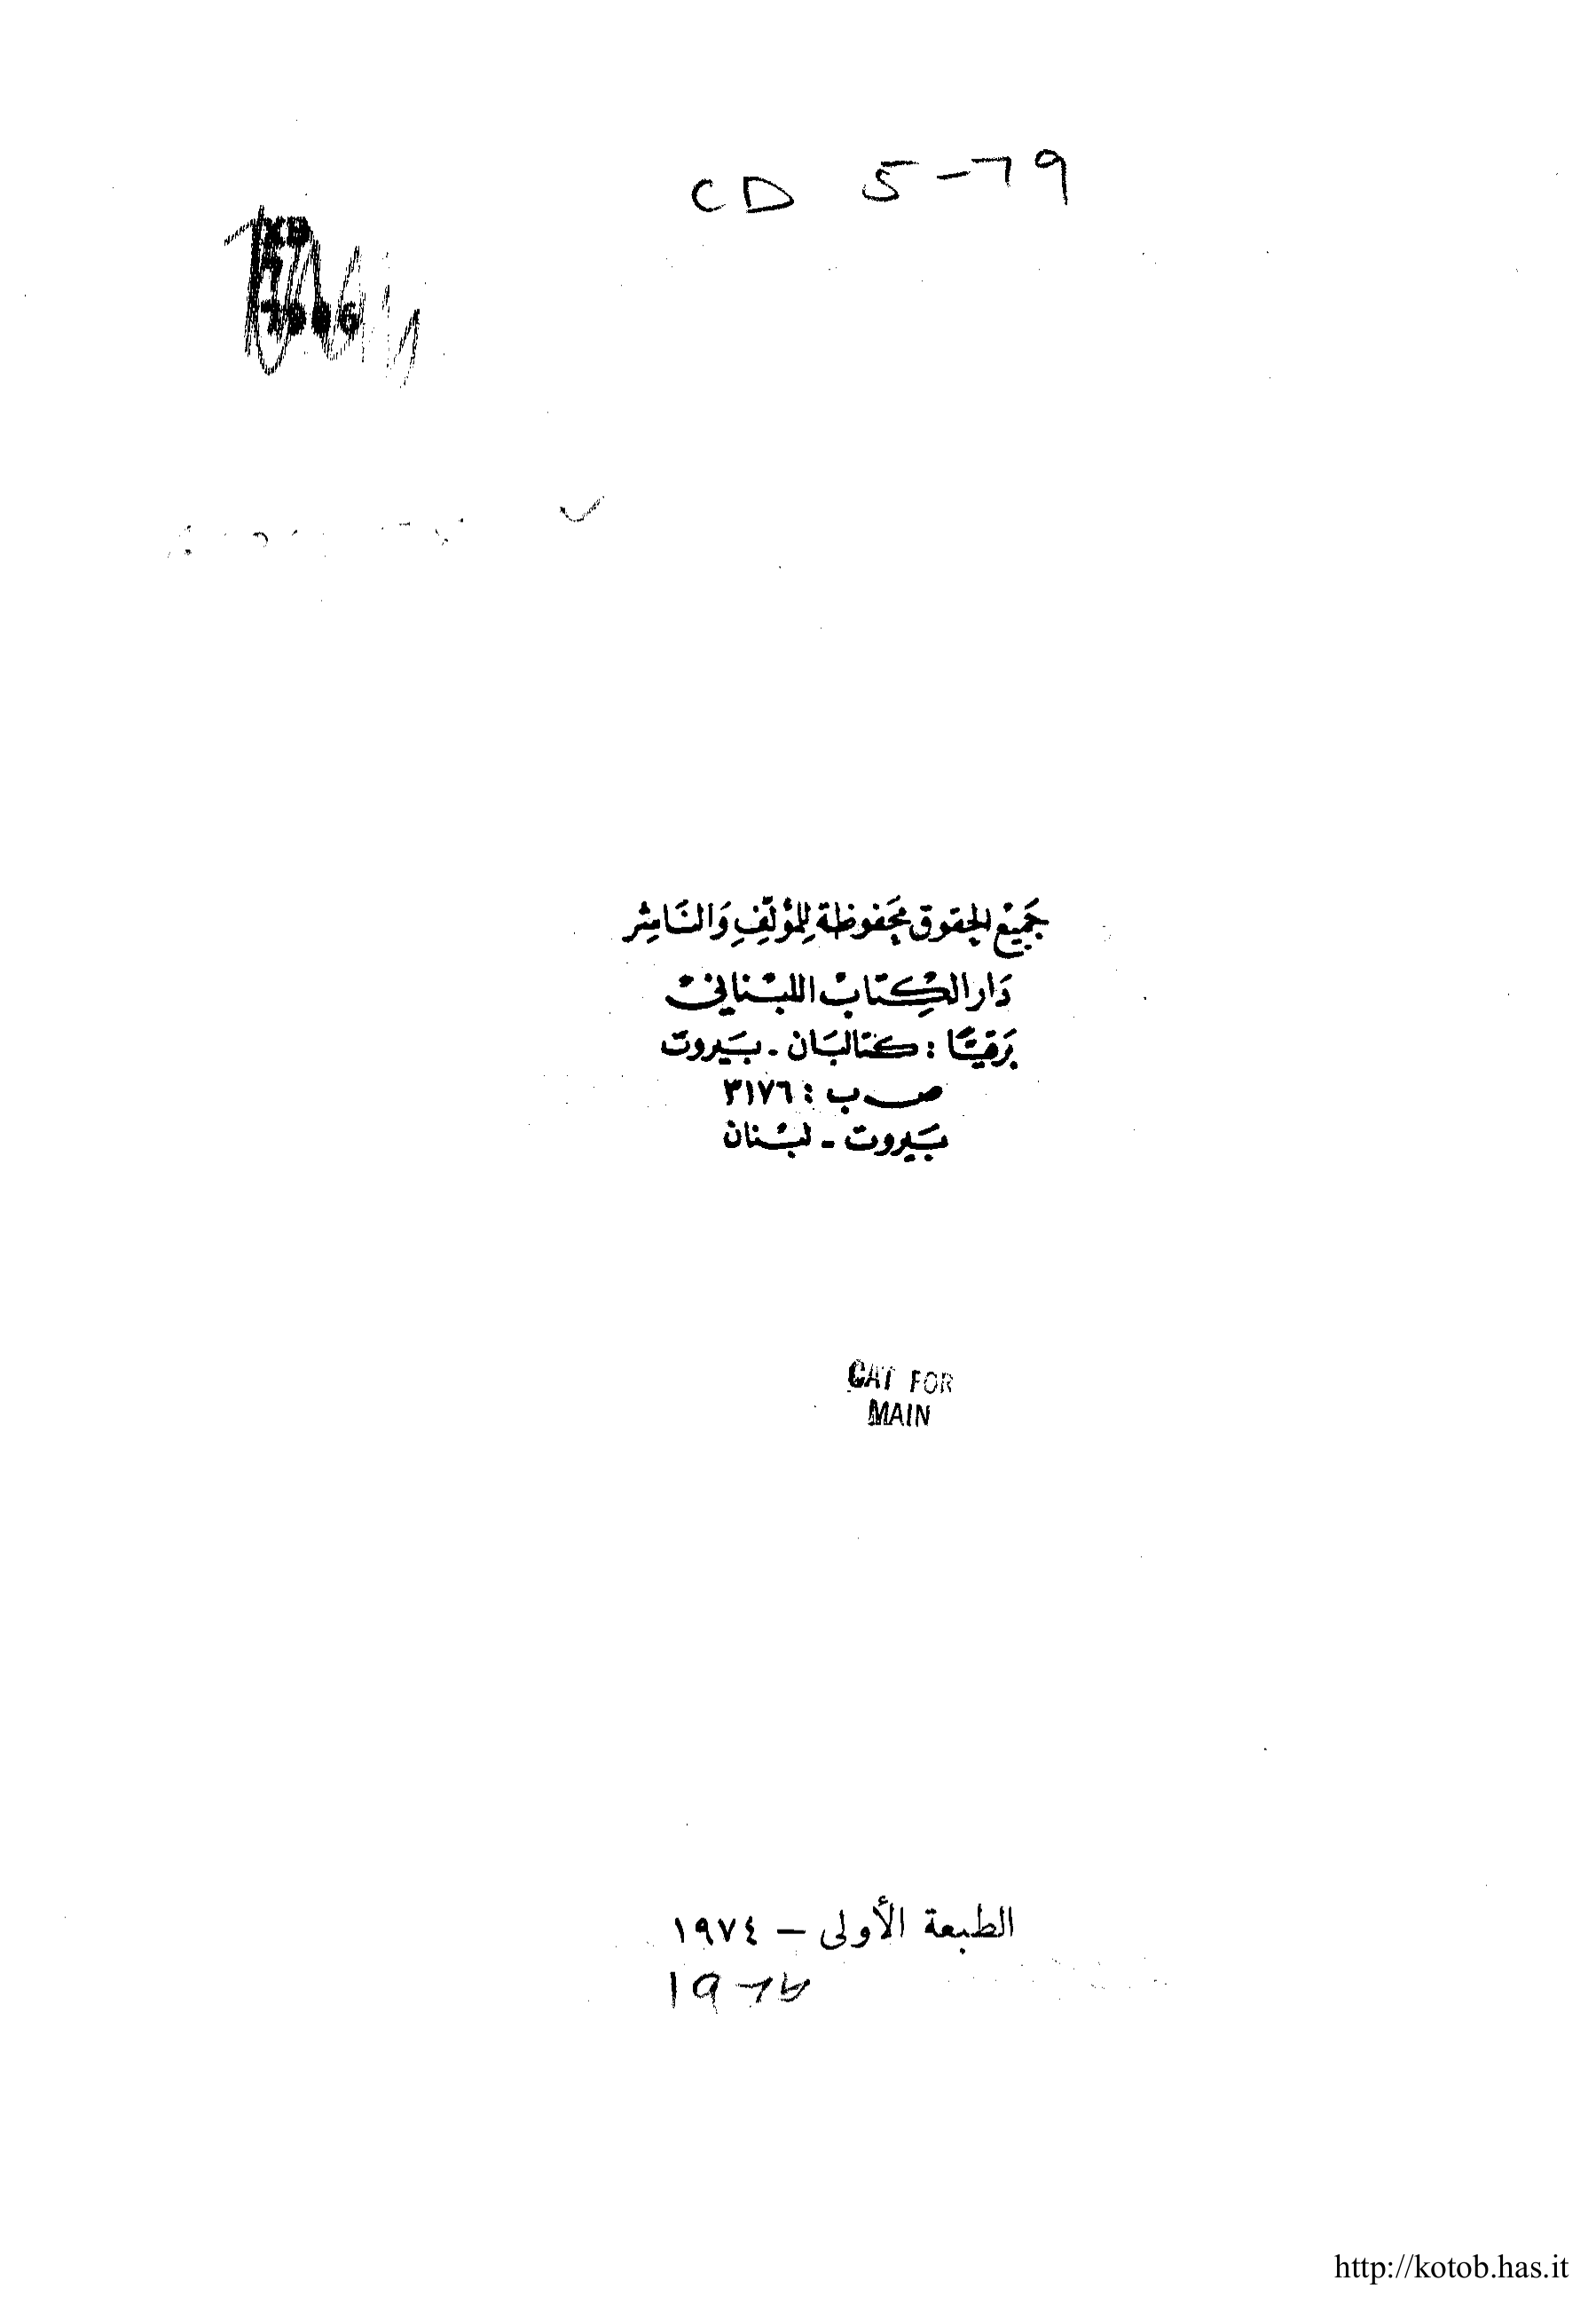 CD 5-79
جَميْع الحقوق مَحفوظة لِلمؤلّفِ وَالنَاشِر
دَار الكِتَابْ اللبْنَاني
بَرقيًا : كتالبَان - بَيروت
ص ب : ٣١٧٦
بَيروت - لبْنان
CAT FOR
MAIN
الطبعة الأولى – ١٩٧٤
1974
http://kotob.has.it